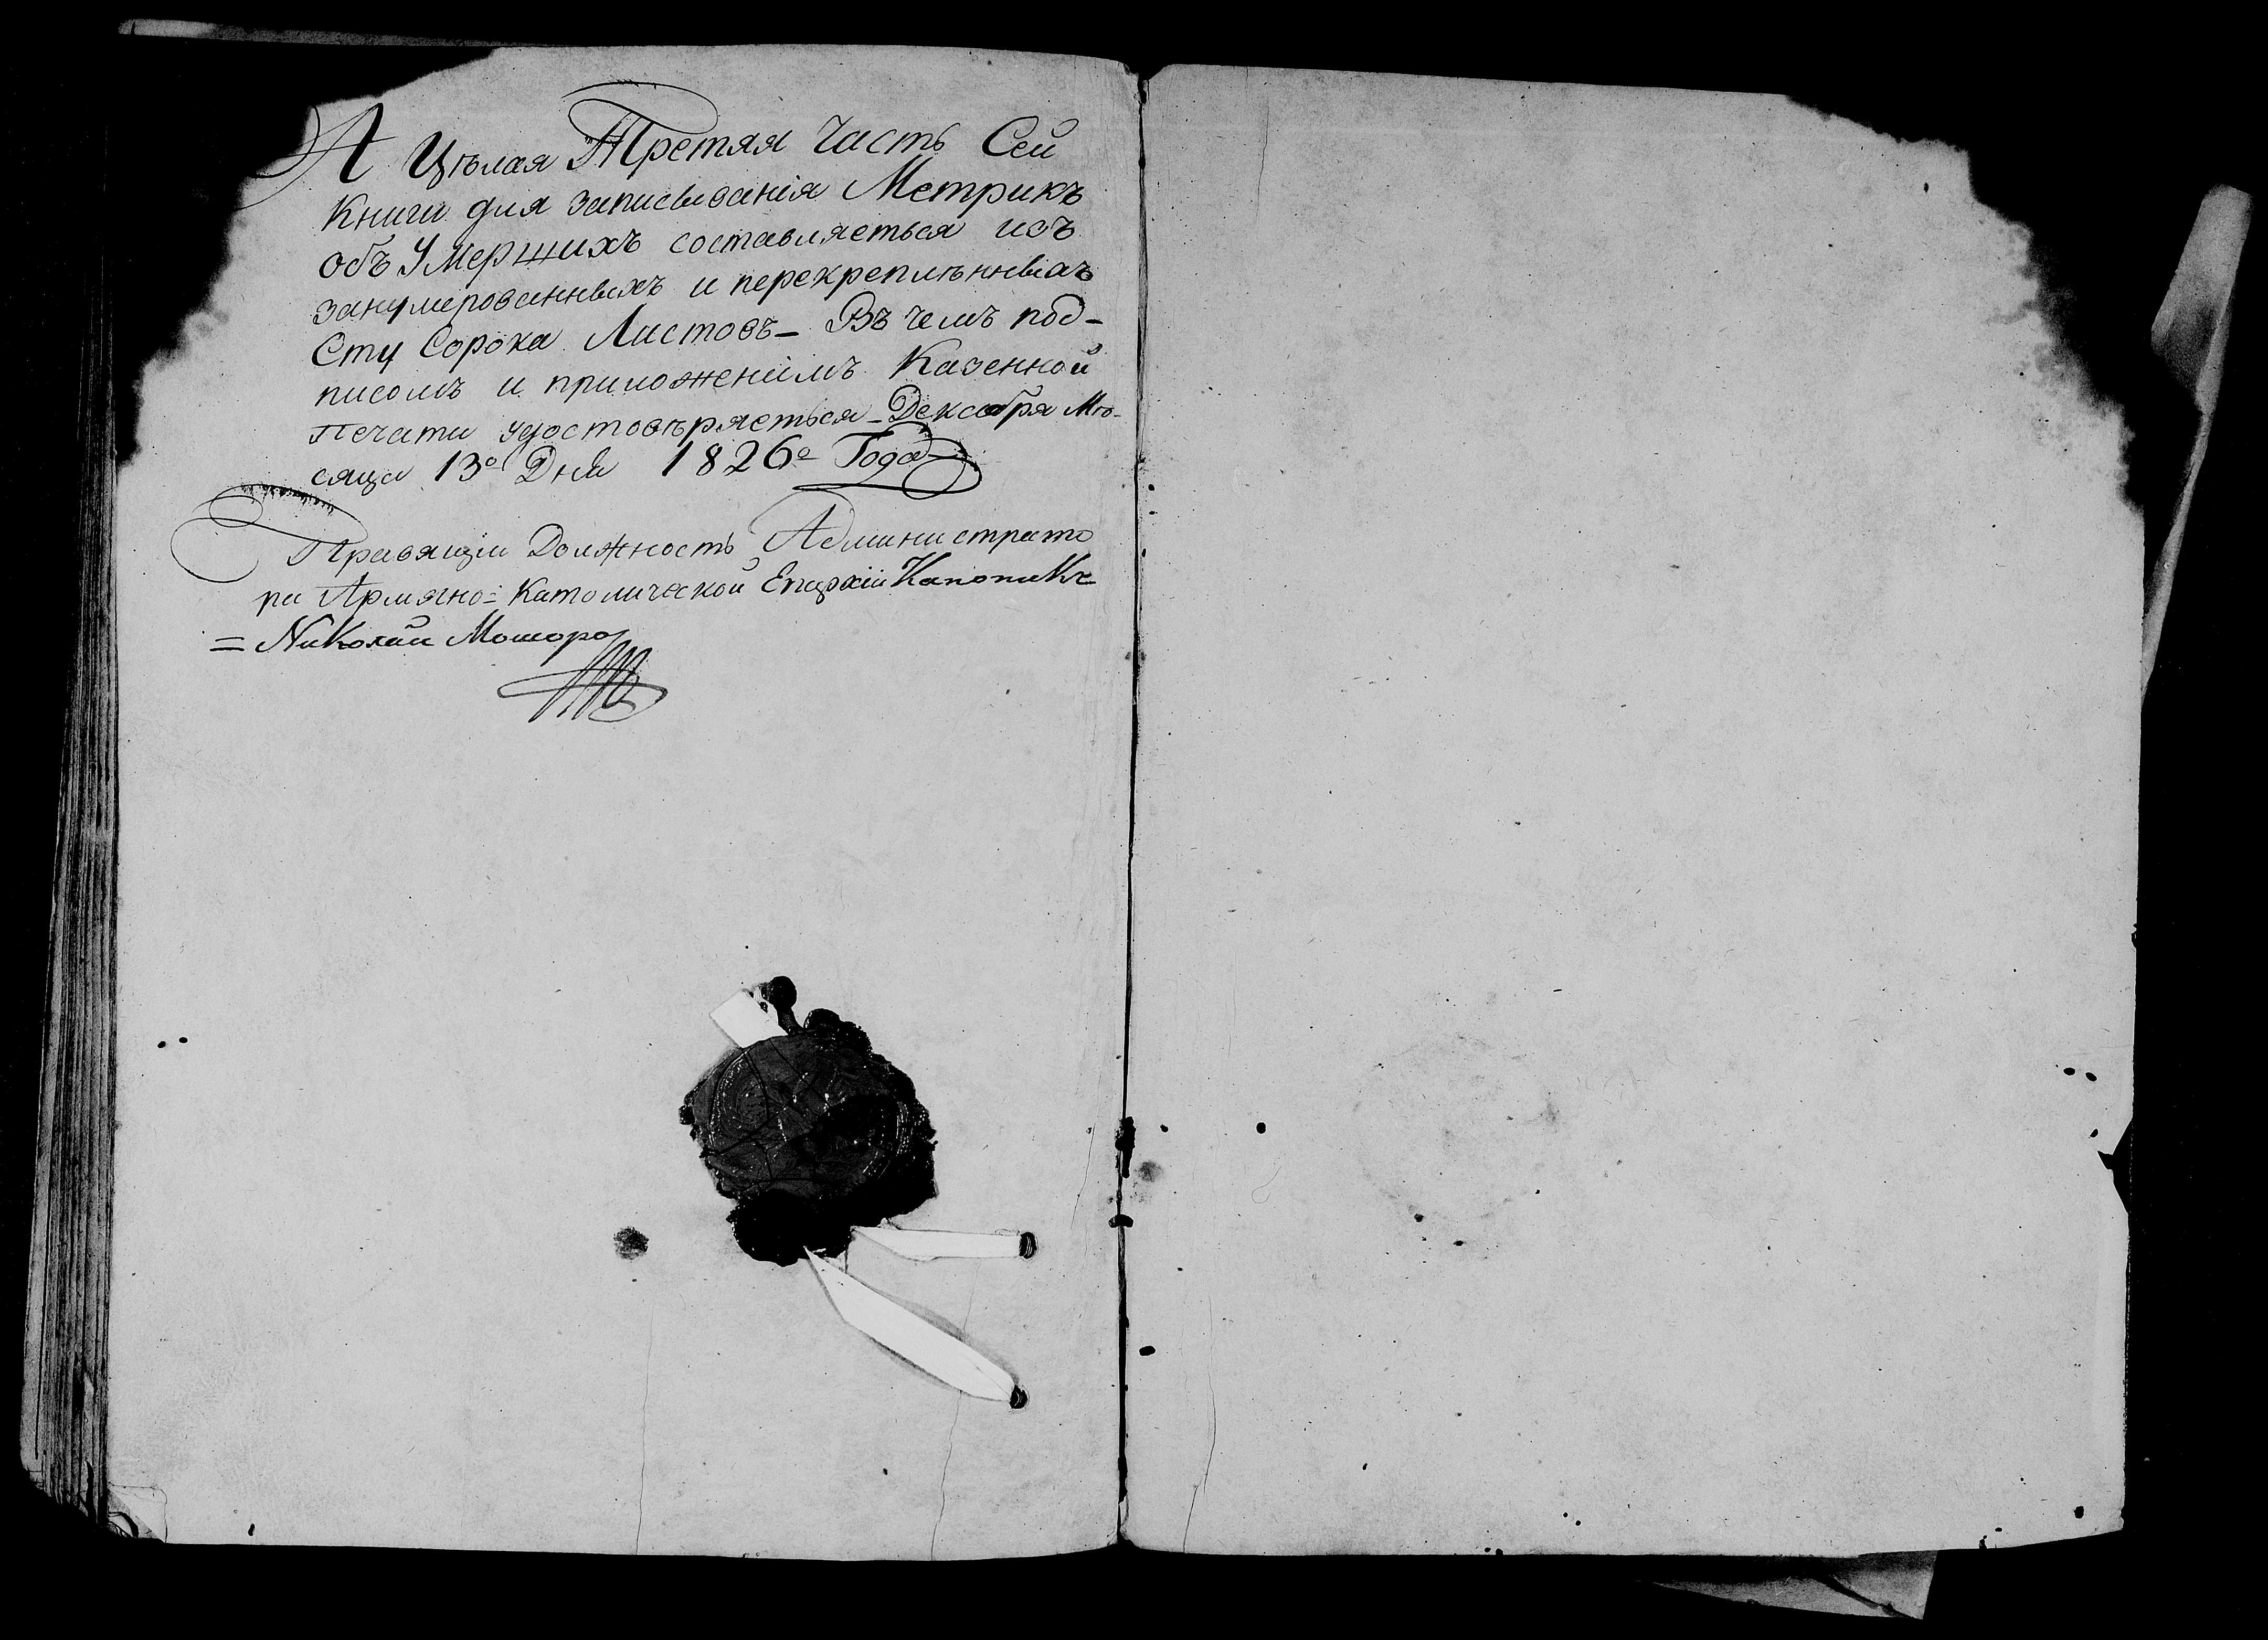 А Цѣлая Третяя Часть Сей
Книги для записыванія Метрикъ
объ Умершихъ составляеться изъ
занумерованныхъ и перекреплѣнныхъ
Сту Сорока Листовъ – Въ чемъ под-
писомъ и приложеніимъ Казенной
Печати удостовѣряеться – Декабря Мѣ-
сяца 13º Дня 1826º Года
Правящій Должность Администрато
ра Армяно= Католической Епархіи Каноникъ
= Николай Мошоро